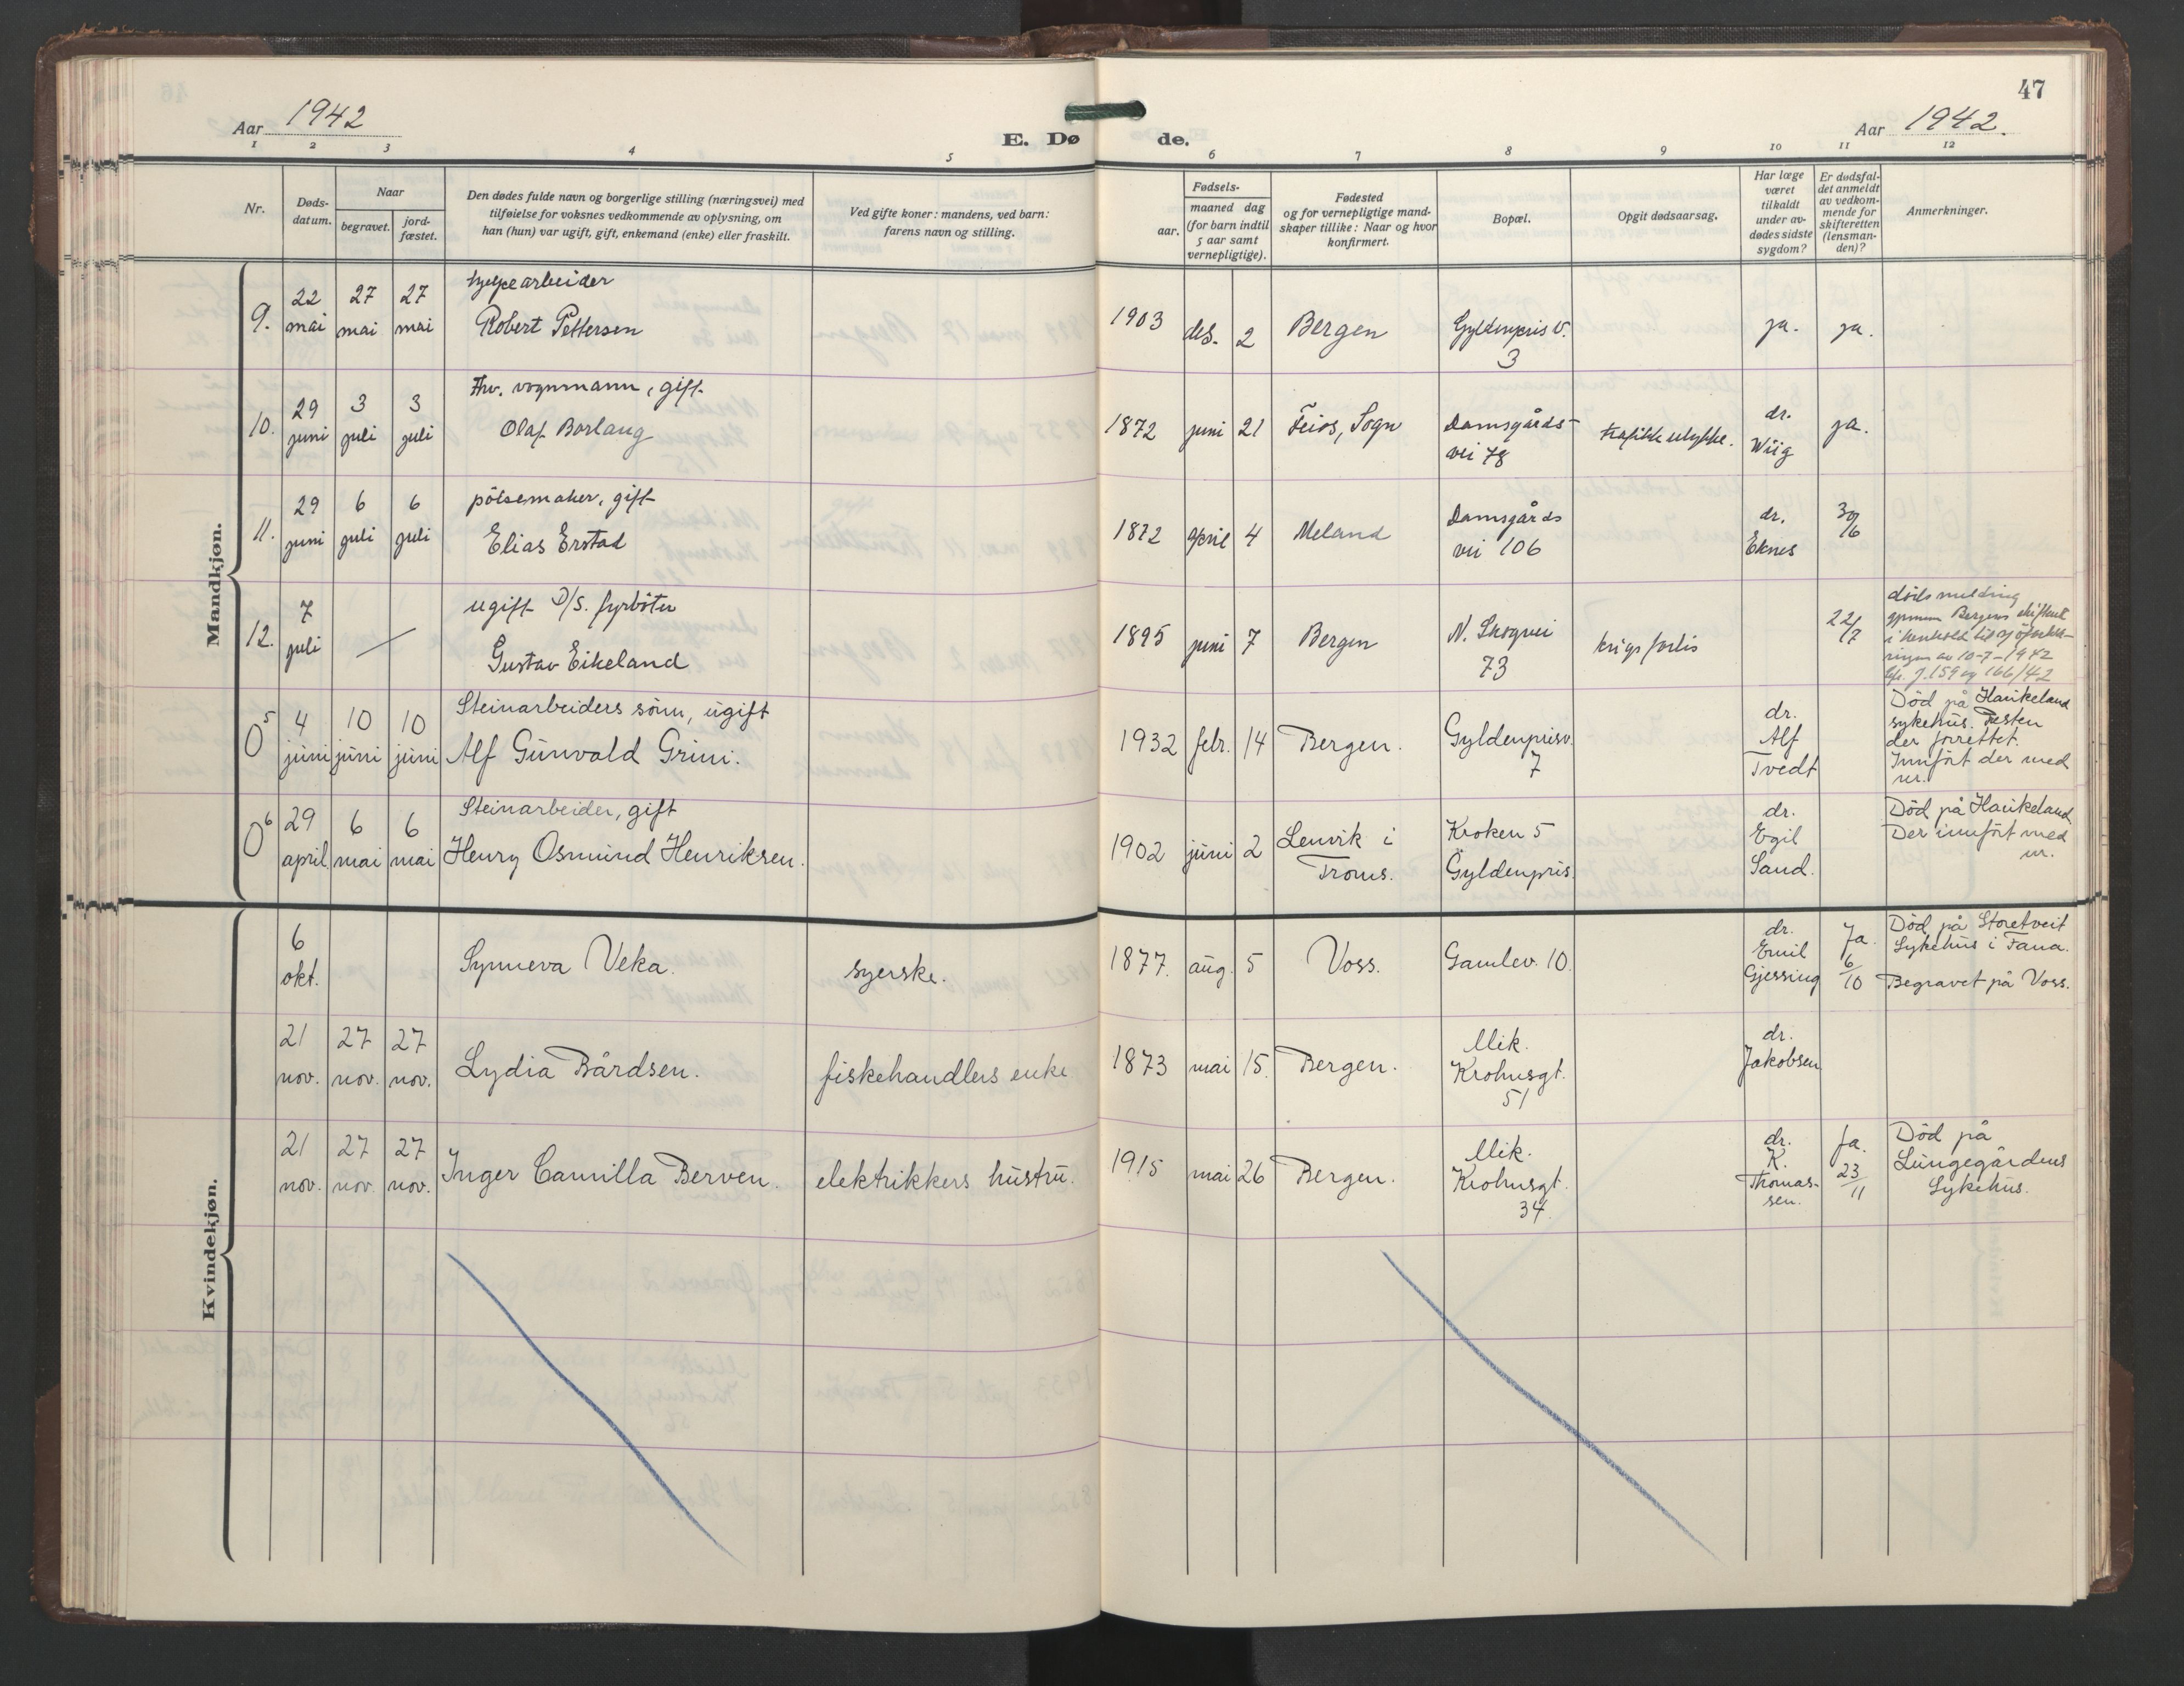 47
Aar 1942
E. Døde.
Aar 1942.
1 2 3 4 5 6 7 8 9 10 11 12
Nr.
Døds-
datum.
Naar
begravet.
jord-
fæstet.
Den dødes fulde navn og borgerlige stilling (næringsvei) med
tilføielse for voksnes vedkommende av oplysning, om
han (hun) var ugift, gift, enkemand (enke) eller fraskilt.
Ved gifte koner: mandens, ved barn:
farens navn og stilling.
Fødsels-
aar.
maaned dag
(for barn indtil
5 aar samt
vernepligtige).
Fødested
og for vernepligtige mand-
skaper tillike: Naar og hvor
konfirmert.
Bopæl.
Opgit dødsaarsag.
Har læge
været
tilkaldt
under av-
dødes sidste
sygdom?
Er dødsfal-
det anmeldt
av vedkom-
mende for
skifteretten
(lensman-
den)?
Anmerkninger.
Mandkjøn.
9. 22 mai 27 mai 27 mai
hjelpearbeider
Robert Pettersen
1903 des. 2 Bergen
Gyldenpris v.
3
ja. ja.
10. 29 juni 3 juli 3 juli
Fhv. vognmann, gift
Olaf Borlaug
1872 juni 21 Feios, Sogn
Damsgårds-
vei 78
trafikkulykke.
dr.
Wiig
ja.
11. 29 juni 6 juli 6 juli
pölsemaker, gift
Elias Erstad
1872 april 4 Meland
Damsgårds
vei 106
dr.
Eknes
30/6
12. 7 juli
ugift D/S. fyrböter
Gustav Eikeland
1895 juni 7 Bergen
N. Skogvei
73
krigsforlis
22/7
dödsmelding
gjennem Bergens skifterett
i henhold til sjöforkla-
ringen av 10-7-1942
J. 159 og 166/42
0 5 4 juni 10 juni 10 juni
Steinarbeiders sönn, ugift
Alf Gunvald Grini.
1932 febr. 14 Bergen.
Gyldenprisv.
7
dr.
Alf
Tvedt
Död på Haukeland
sykehus. Resten
der forrettet.
Innfört der med
nr.
0 6 29 april 6 mai 6 mai
Steinarbeider, gift
Henry Osmund Henriksen.
1902 juni 2 Lenvik i
Troms.
Kroken 5
Gyldenpris.
dr.
Egil
Sand.
Död på Haukeland
Der innfört med
nr.
Kvindekjøn.
6 okt.
Synneva Veka.
syerske.
1877. aug. 5 Voss.
Gamlev. 10.
dr.
Emil
Gjessing
Ja.
6/10
Död på Storetveit
Sykehus i Fana.
Begravet på Voss.
21 nov. 27 nov. 27 nov.
Lydia Bårdsen.
fiskehandlers enke
1873 mai 15. Bergen.
Mik.
Krohnsgt.
51
dr.
Jakobsen
21 nov. 27 nov. 27 nov.
Inger Camilla Berven.
elektrikkers hustru.
1915 mai 26 Bergen.
Mik.
Krohnsgt.
34.
dr.
K.
Thomas-
sen.
Ja.
23/11
Död på
Lungegårdens
Sykehus.